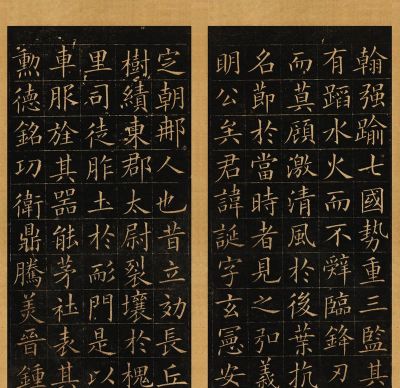 翰强踰七國勢重三監其
有蹈水火而不辭臨鋒刃
而莫顧激清風於後葉抗
名節於當時者見之弘義
明公矣君諱誕字玄憲安
定朝那人也昔立効長丘
樹績東郡太尉裂壤於槐
里司徒胙土於耏門是以
車服旌其器能茅社表其
勳德銘功衛鼎騰美晉鍾